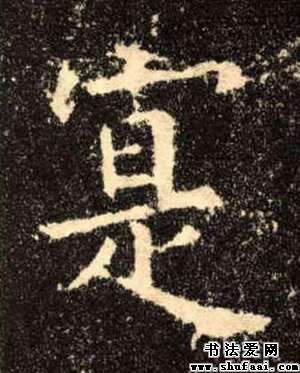 寔
书法爱网
www.shufaai.com